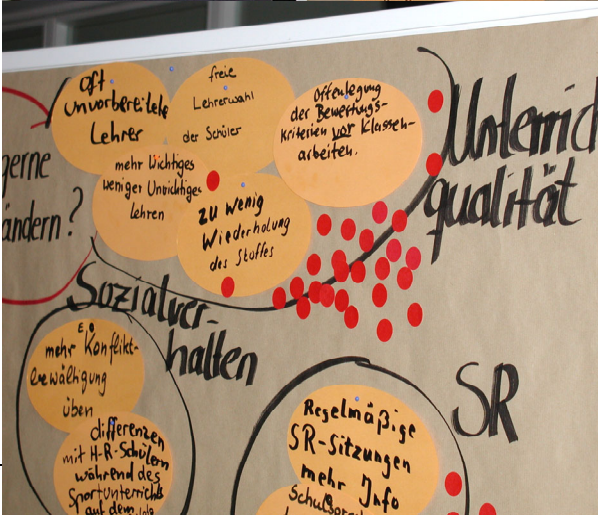 gerne
ändern?
oft
unvorbereitete
Lehrer
freie
Lehrerwahl
der Schüler
Offenlegung
der Bewertungs-
kriterien vor Klassen-
arbeiten.
mehr Wichtiges
weniger Unwichtiges
lehren
zu wenig
Wiederholung
des Stoffes
Unterric
qualität
Sozialver-
halten
mehr Konflikt-
bewältigung
üben
differenzen
mit H-R-Schülern
während des
Sportunterrichts
auf dem
SR
Regelmäßige
SR-Sitzungen
mehr Info